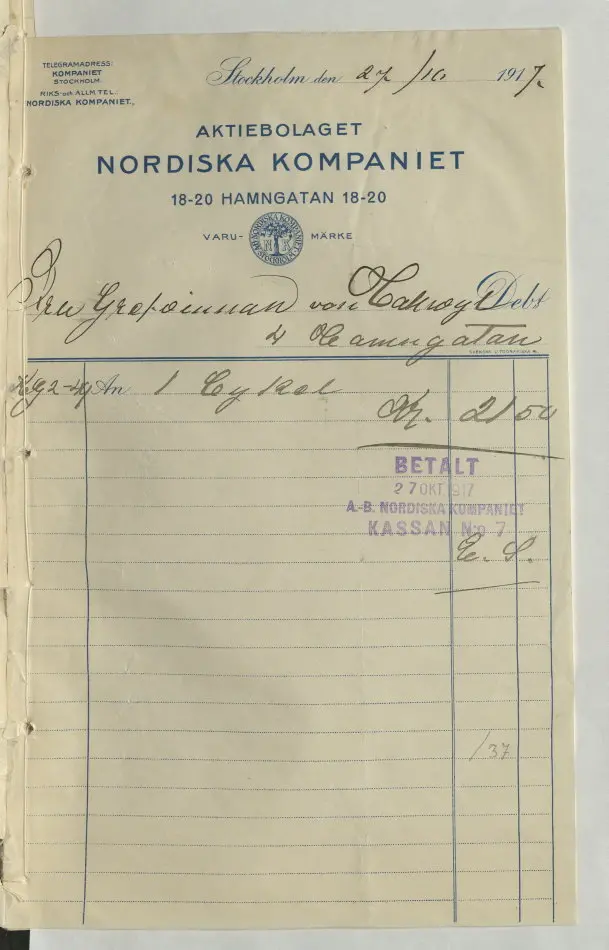 TELEGRAMADRESS:
KOMPANIET
STOCKHOLM.
RIKS- och ALLM. TEL.:
NORDISKA KOMPANIET.,
Stockholm den 27/10 1917.
AKTIEBOLAGET
NORDISKA KOMPANIET
18-20 HAMNGATAN 18-20
VARU- MÄRKE
NK
Fru Grefvinnan von Hallwyl Debt
4 Hamngatan
An 1 Cykel
Kr. 21 50
BETALT
27 OKT. 1917
A.-B. NORDISKA KOMPANIET
KASSAN No 7
E. S.
/37